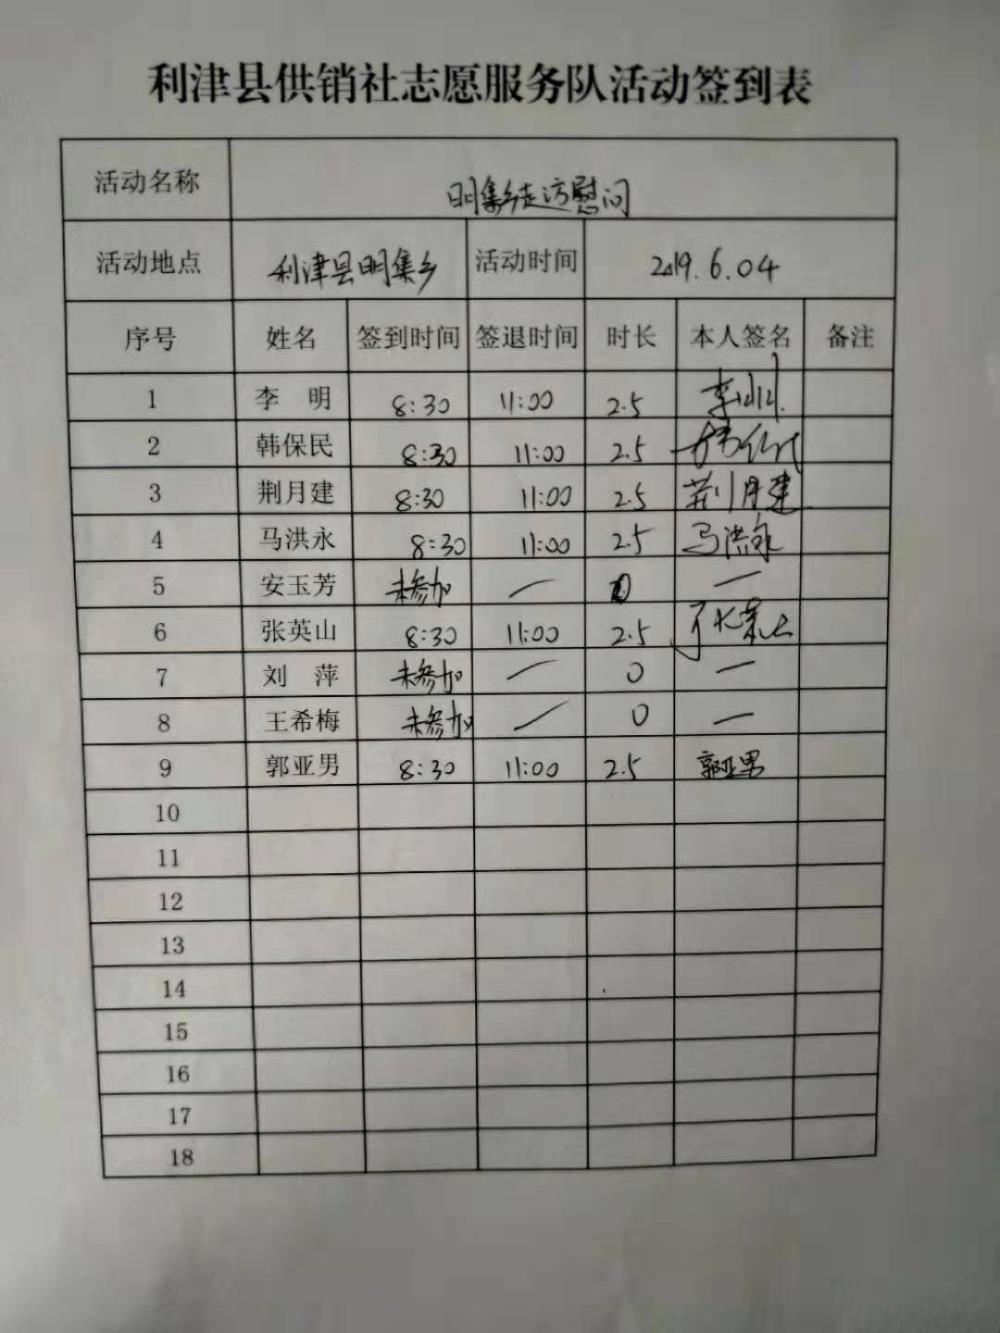 利津县供销社志愿服务队活动签到表
活动名称 明集乡走访慰问
活动地点 利津县明集乡 活动时间 2019.6.04
序号 姓名 签到时间 签退时间 时长 本人签名 备注
1 李 明 8:30 11:00 2.5 李明
2 韩保民 8:30 11:00 2.5
3 荆月建 8:30 11:00 2.5 荆月建
4 马洪永 8:30 11:00 2.5 马洪永
5 安玉芳 未参加 — 0 —
6 张英山 8:30 11:00 2.5 张英山
7 刘 萍 未参加 — 0 —
8 王希梅 未参加 — 0 —
9 郭亚男 8:30 11:00 2.5 郭亚男
10
11
12
13
14
15
16
17
18